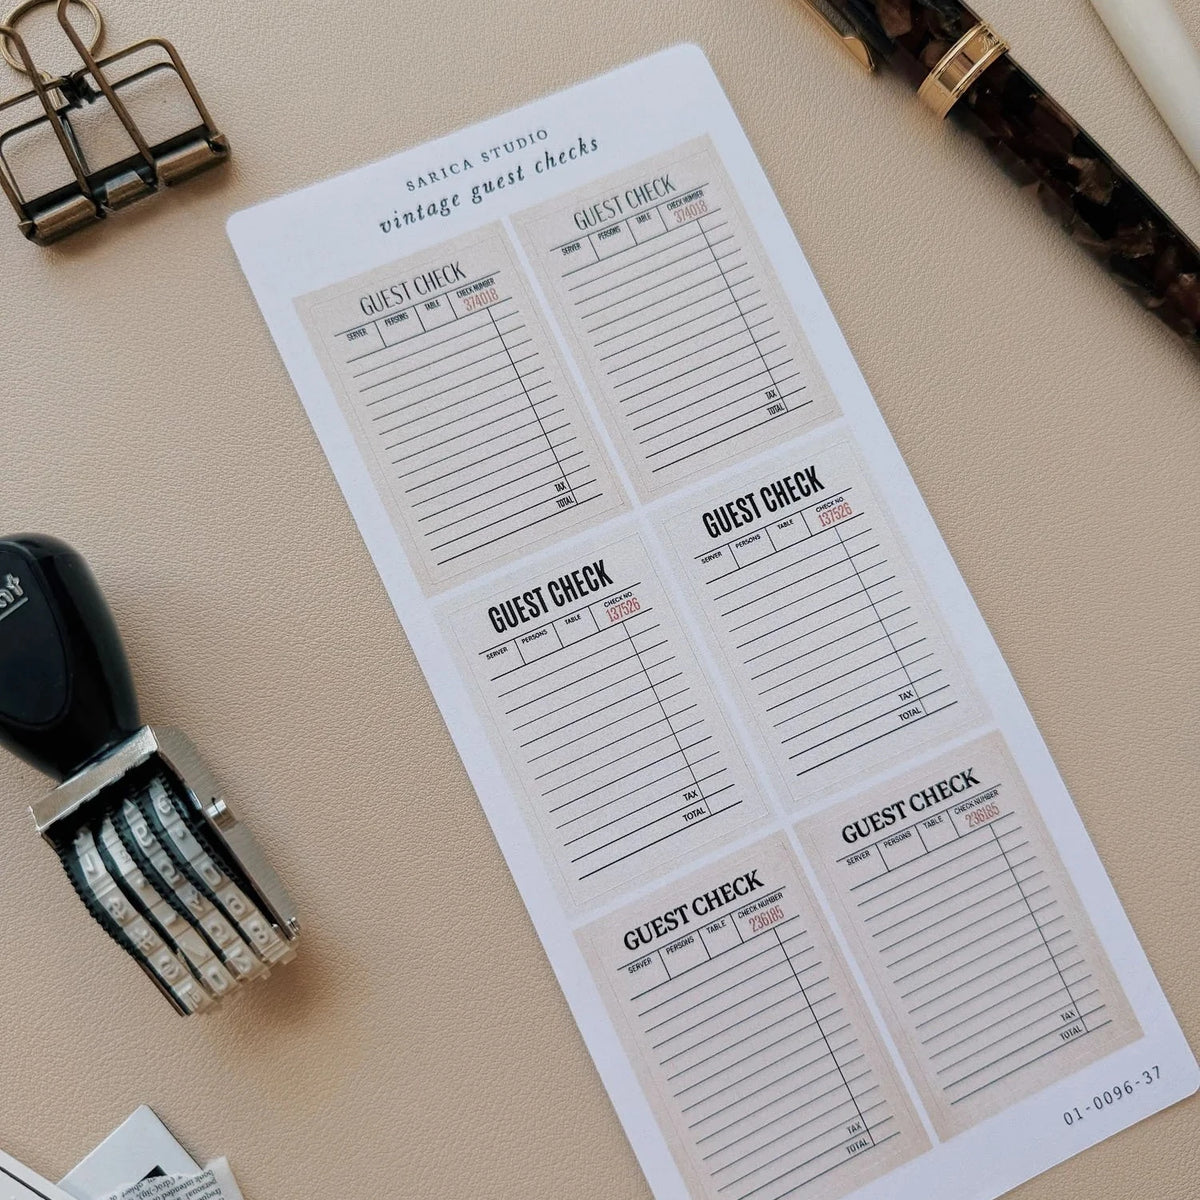 SARICA STUDIO
vintage guest checks
GUEST CHECK
SERVER PERSONS TABLE CHECK NUMBER
374018
TAX
TOTAL
GUEST CHECK
SERVER PERSONS TABLE CHECK NUMBER
374018
TAX
TOTAL
GUEST CHECK
SERVER PERSONS TABLE CHECK NO.
137526
TAX
TOTAL
GUEST CHECK
SERVER PERSONS TABLE CHECK NO.
137526
TAX
TOTAL
GUEST CHECK
SERVER PERSONS TABLE CHECK NUMBER
236185
TAX
TOTAL
GUEST CHECK
SERVER PERSONS TABLE CHECK NUMBER
236185
TAX
TOTAL
01-0096-37